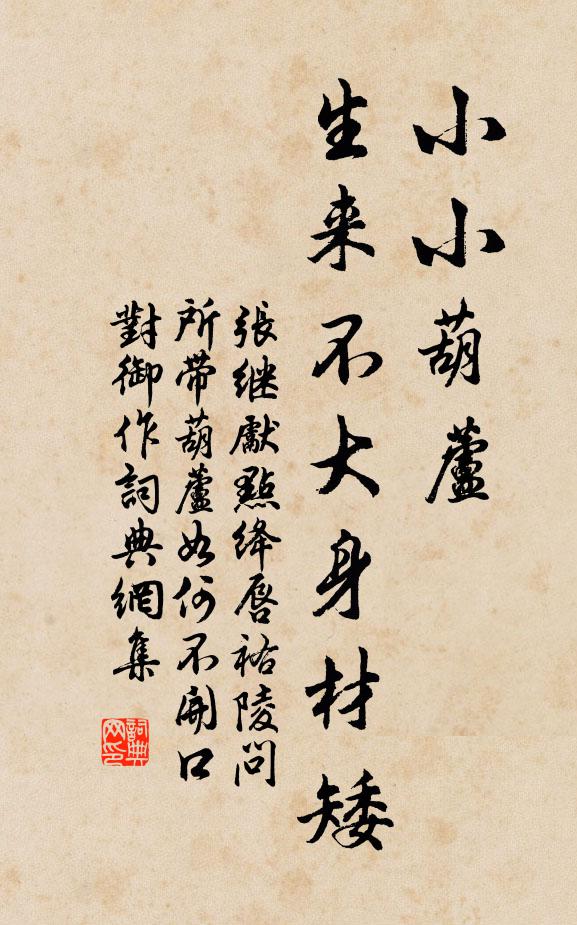 小小葫蘆
生来不大身材矮
張继獻點绛唇祐陵問
所带葫蘆如何不開口
對御作詞典網集
詞典
网印